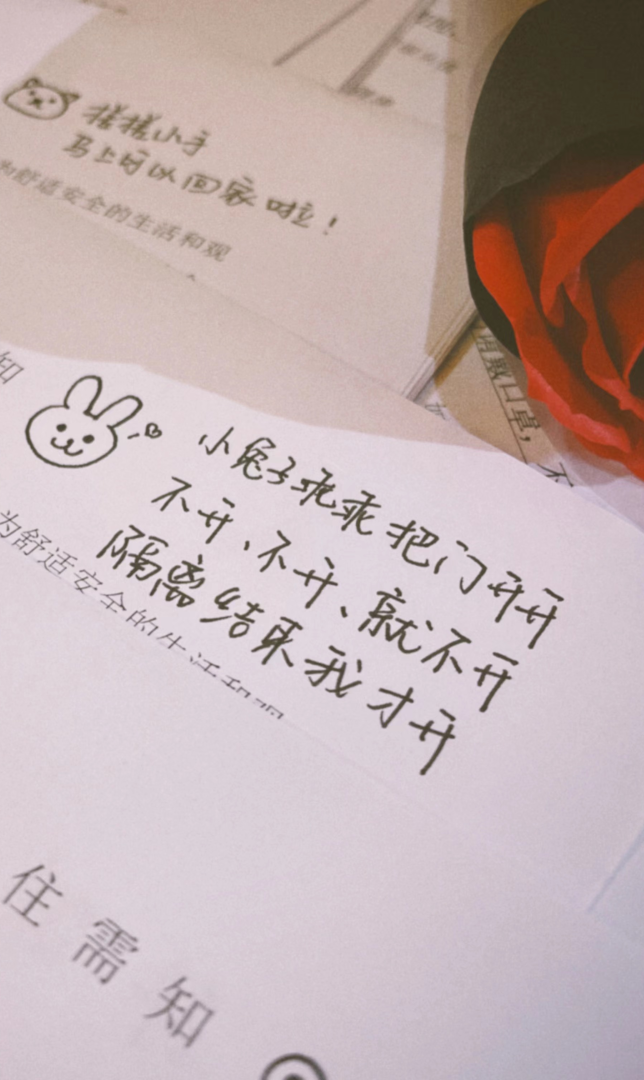 搓搓小手
马上可以回家啦!
和舒适安全的生活和观
用戴口罩,不
知
小兔子乖乖把门开开
不开、不开、就不开
隔离结束我才开
为舒适安全的生活和观
住需知